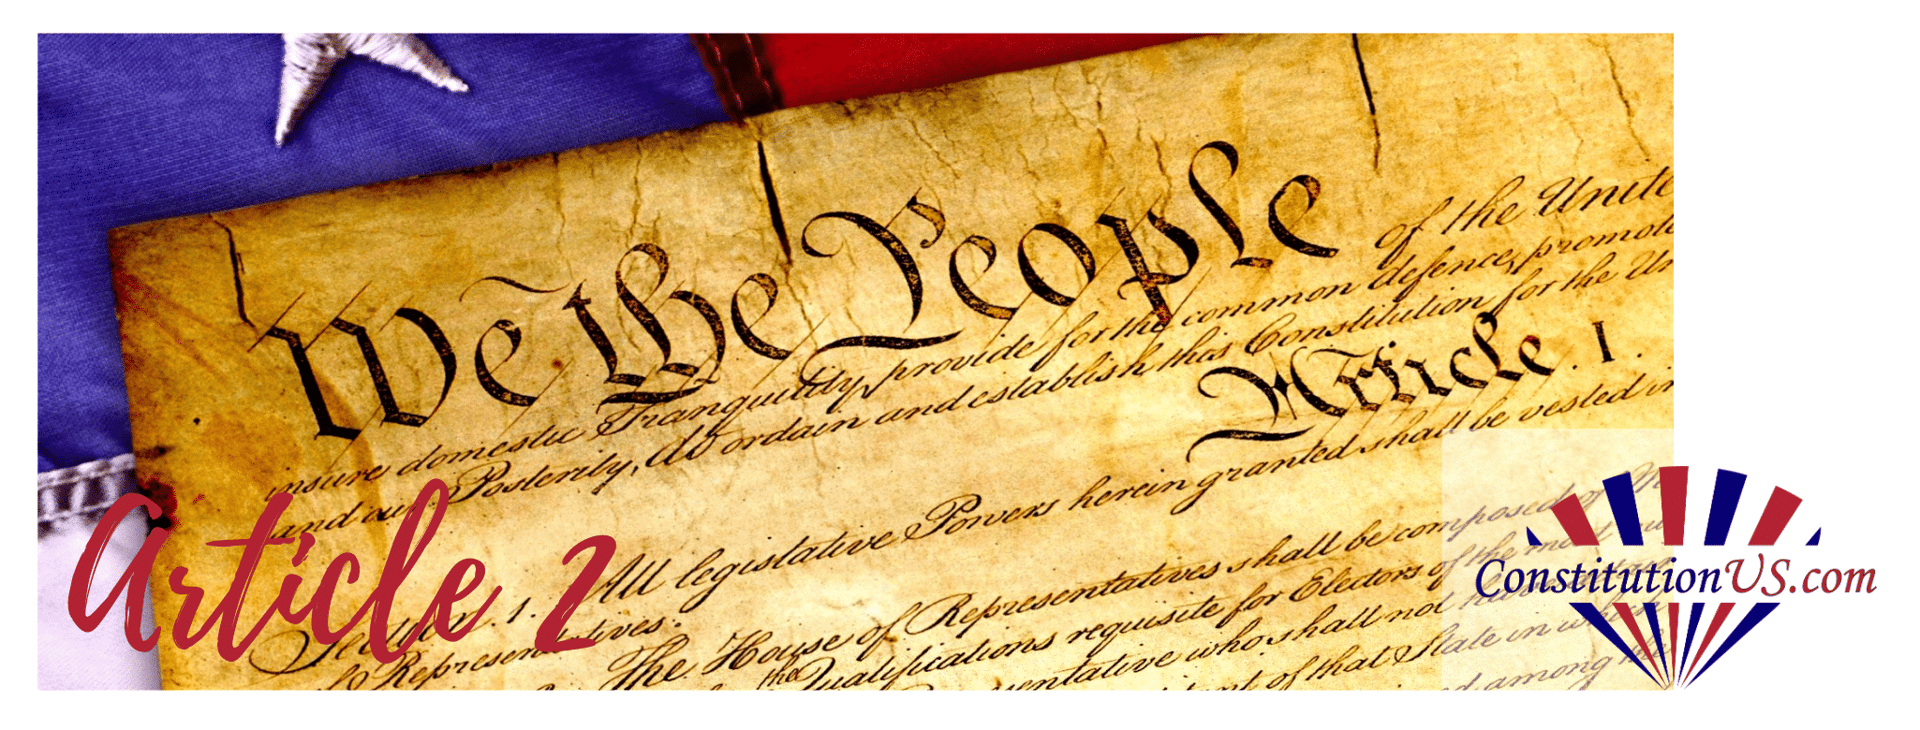 We the People
of the Unite
insure domestic Tranquility, provide for the common defence, promote
and our Posterity, do ordain and establish this Constitution for the Un
Article. I.
Section. 1. All legislative Powers herein granted shall be vested in
of Representatives.
The House of Representatives shall be composed of
the Qualifications requisite for Electors of the most nu
Representative who shall not have
of that State in which
among the
Article 2
ConstitutionUS.com